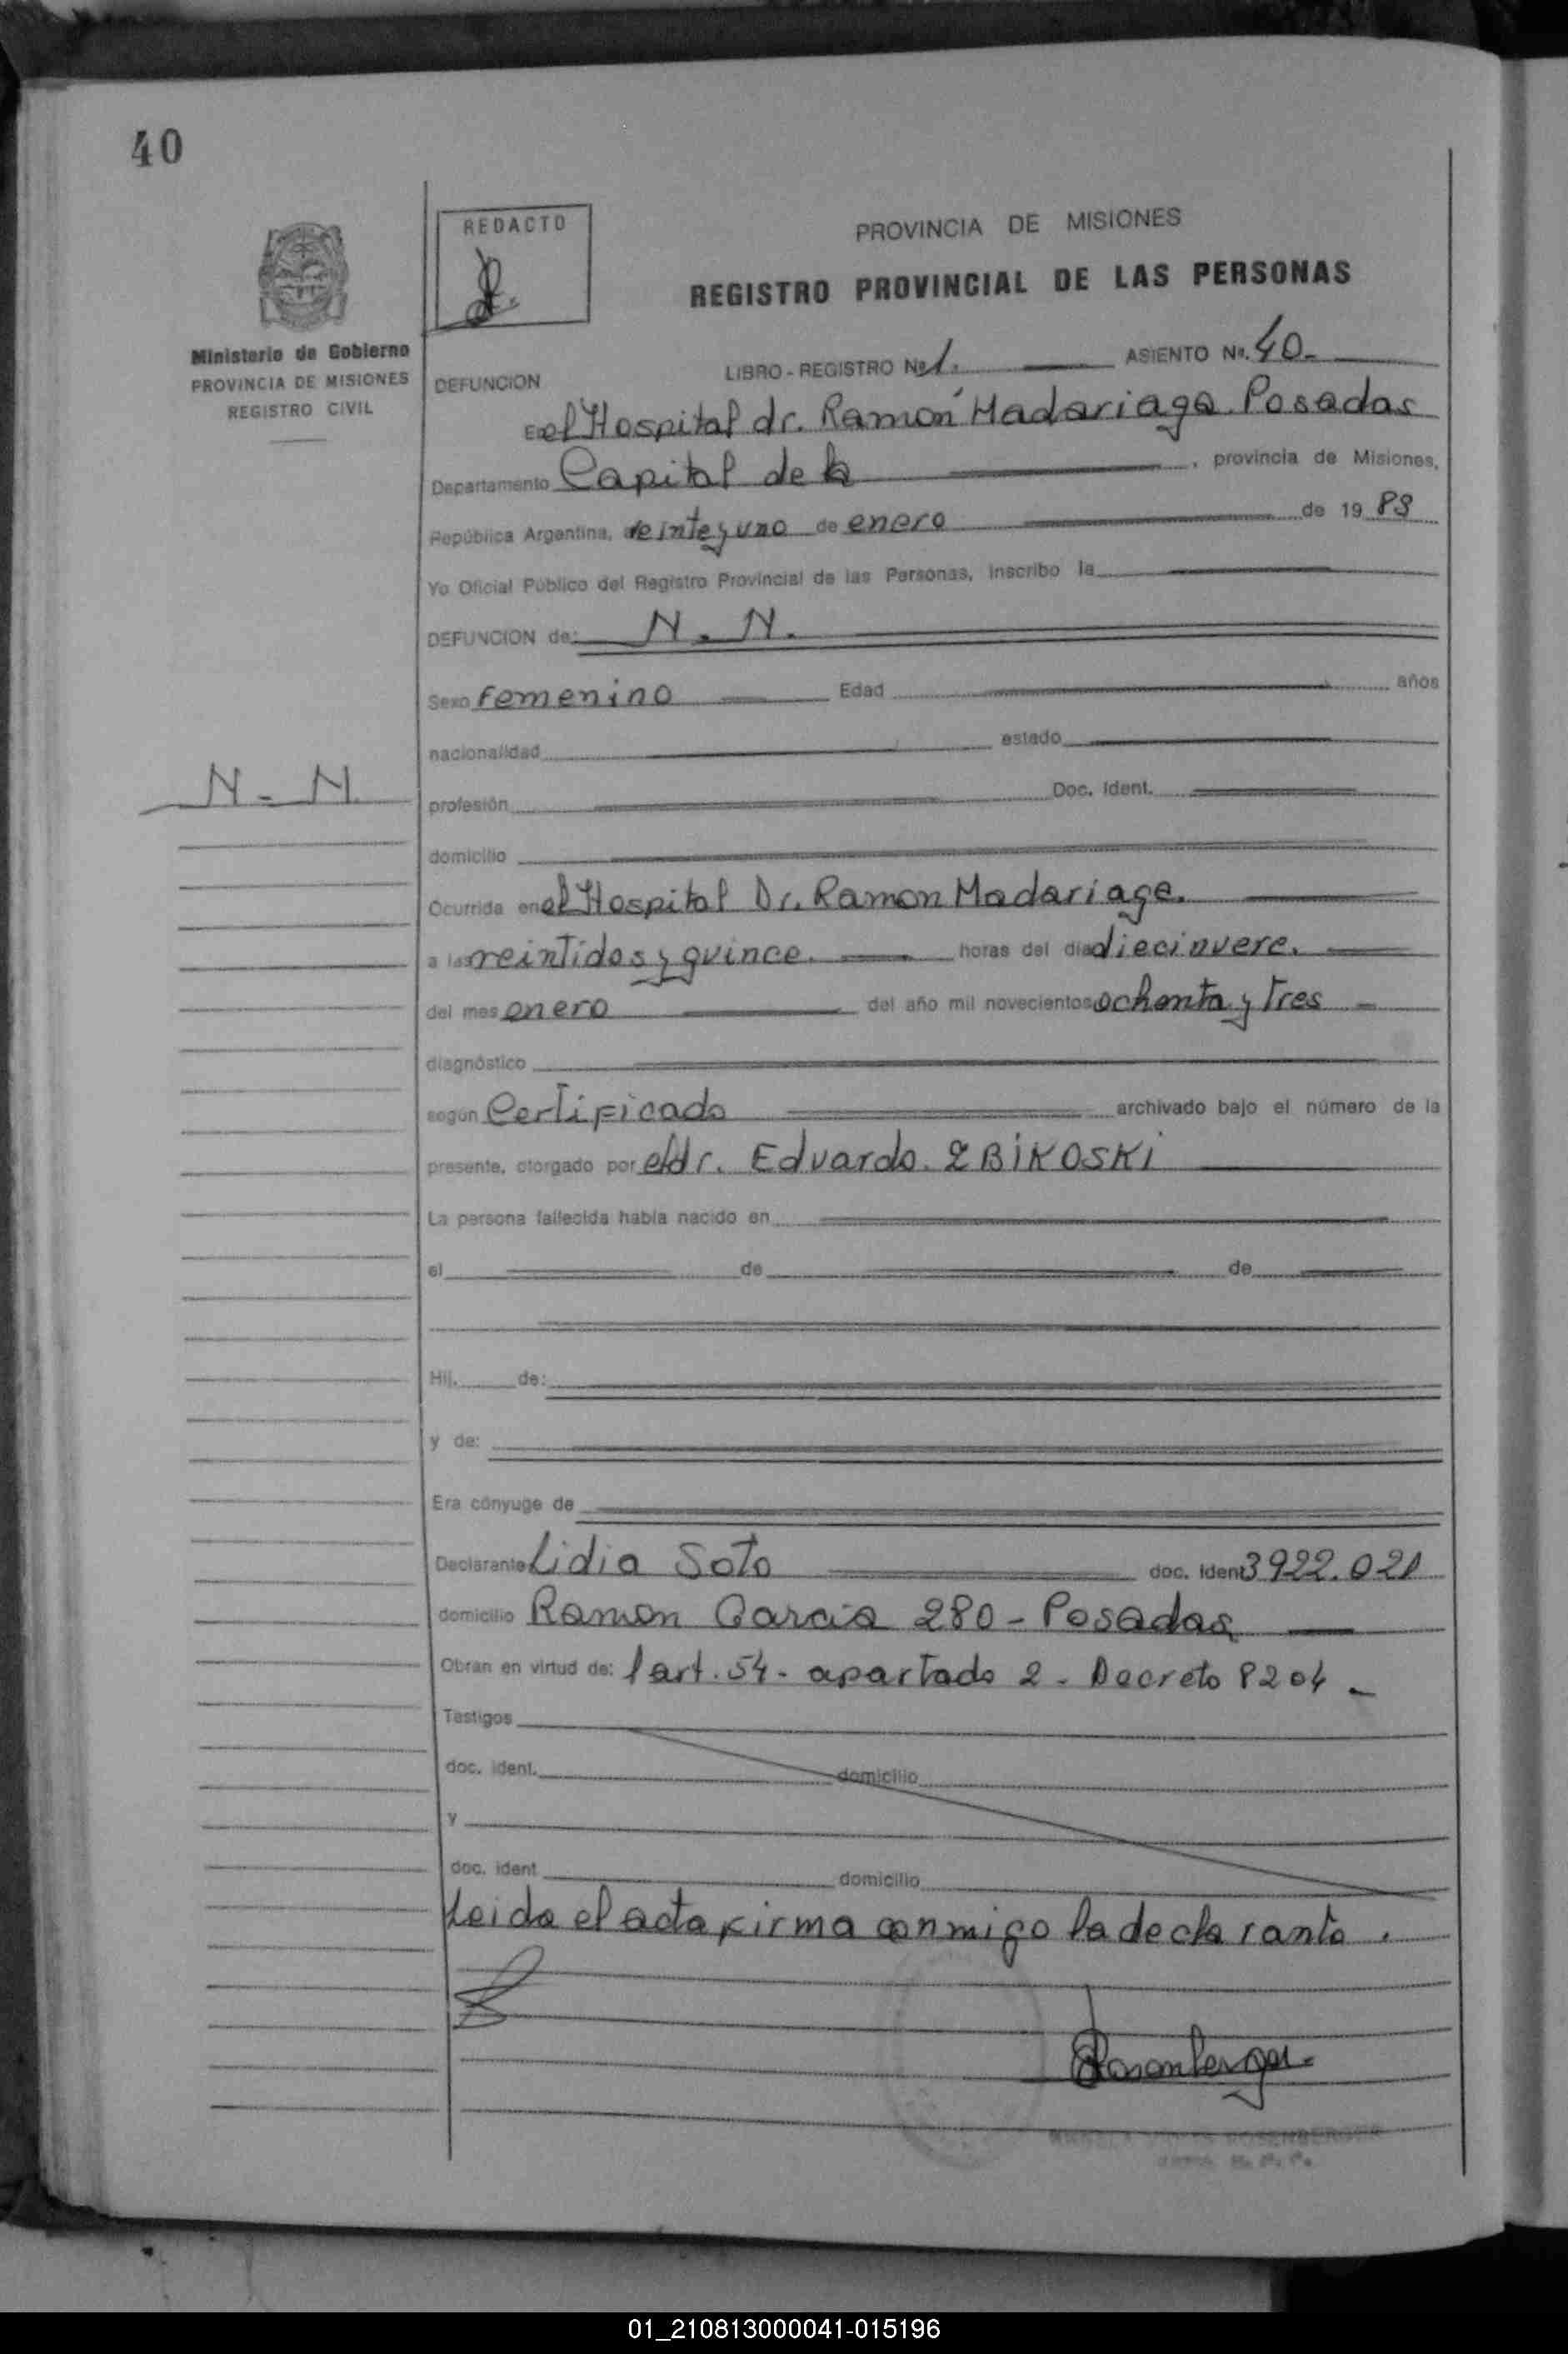 40
REDACTO
PROVINCIA DE MISIONES
REGISTRO PROVINCIAL DE LAS PERSONAS
Ministerio de Gobierno
PROVINCIA DE MISIONES
REGISTRO CIVIL
DEFUNCION LIBRO - REGISTRO Nº 1. ASIENTO Nº. 40-
En el Hospital dr. Ramón Madariaga. Posadas
Departamento Capital de la , provincia de Misiones,
República Argentina, a veinteyuno de enero de 19 83
Yo Oficial Público del Registro Provincial de las Personas, inscribo la
DEFUNCION de: N. N.
Sexo Femenino Edad años
nacionalidad estado
N - N.
profesión Doc. Ident.
domicilio
Ocurrida en el Hospital Dr. Ramon Madariaga.
a las veintidos y quince. horas del día diecinueve.
del mes enero del año mil novecientos ochenta y tres -
diagnóstico
según Certificado archivado bajo el número de la
presente, otorgado por el dr. Eduardo. ZBIKOSKI
La persona fallecida había nacido en
el de de
Hij. de:
y de:
Era cónyuge de
Declarante Lidia Soto doc. Ident 3922.021
domicilio Ramon Garcia 280 - Posadas
Obran en virtud de: l art. 54 - apartado 2 - Decreto 8204 -
Testigos
doc. ident. domicilio
y
doc. ident domicilio
Leida el acta firma conmigo la declarante.
Rosenberger
ROSENBERGER
01_210813000041-015196